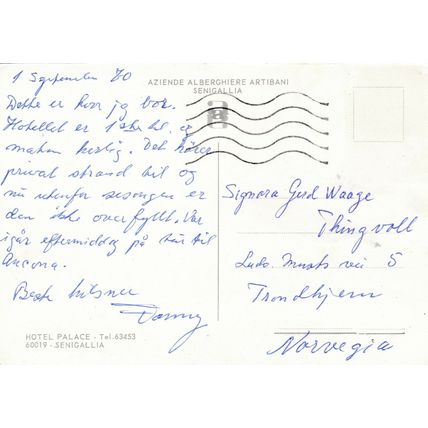 1 September 70
AZIENDE ALBERGHIERE ARTIBANI
SENIGALLIA
Dette er hvor jeg bor.
Hotellet er 1 ste kl. og
maten herlig. Det hører
privat strand til og
nu utenfor sesongen er
den ikke overfyllt. Var
igår eftermiddag på tur til
Ancona.
Beste hilsner
HOTEL PALACE - Tel. 63453
60019 - SENIGALLIA
Signora Gerd Waage
Thingvoll
Ludv. vei 5
Trondhjem
Norvegia